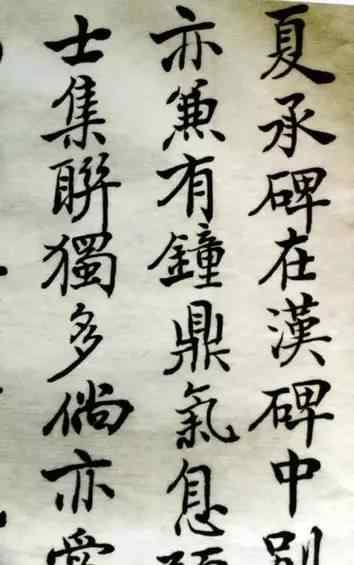 夏承碑在漢碑中別
亦兼有鐘鼎氣息
士集聯獨多倘亦愛